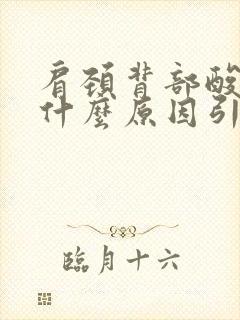 肩頚背部酸
什麼原因引
臨月十六